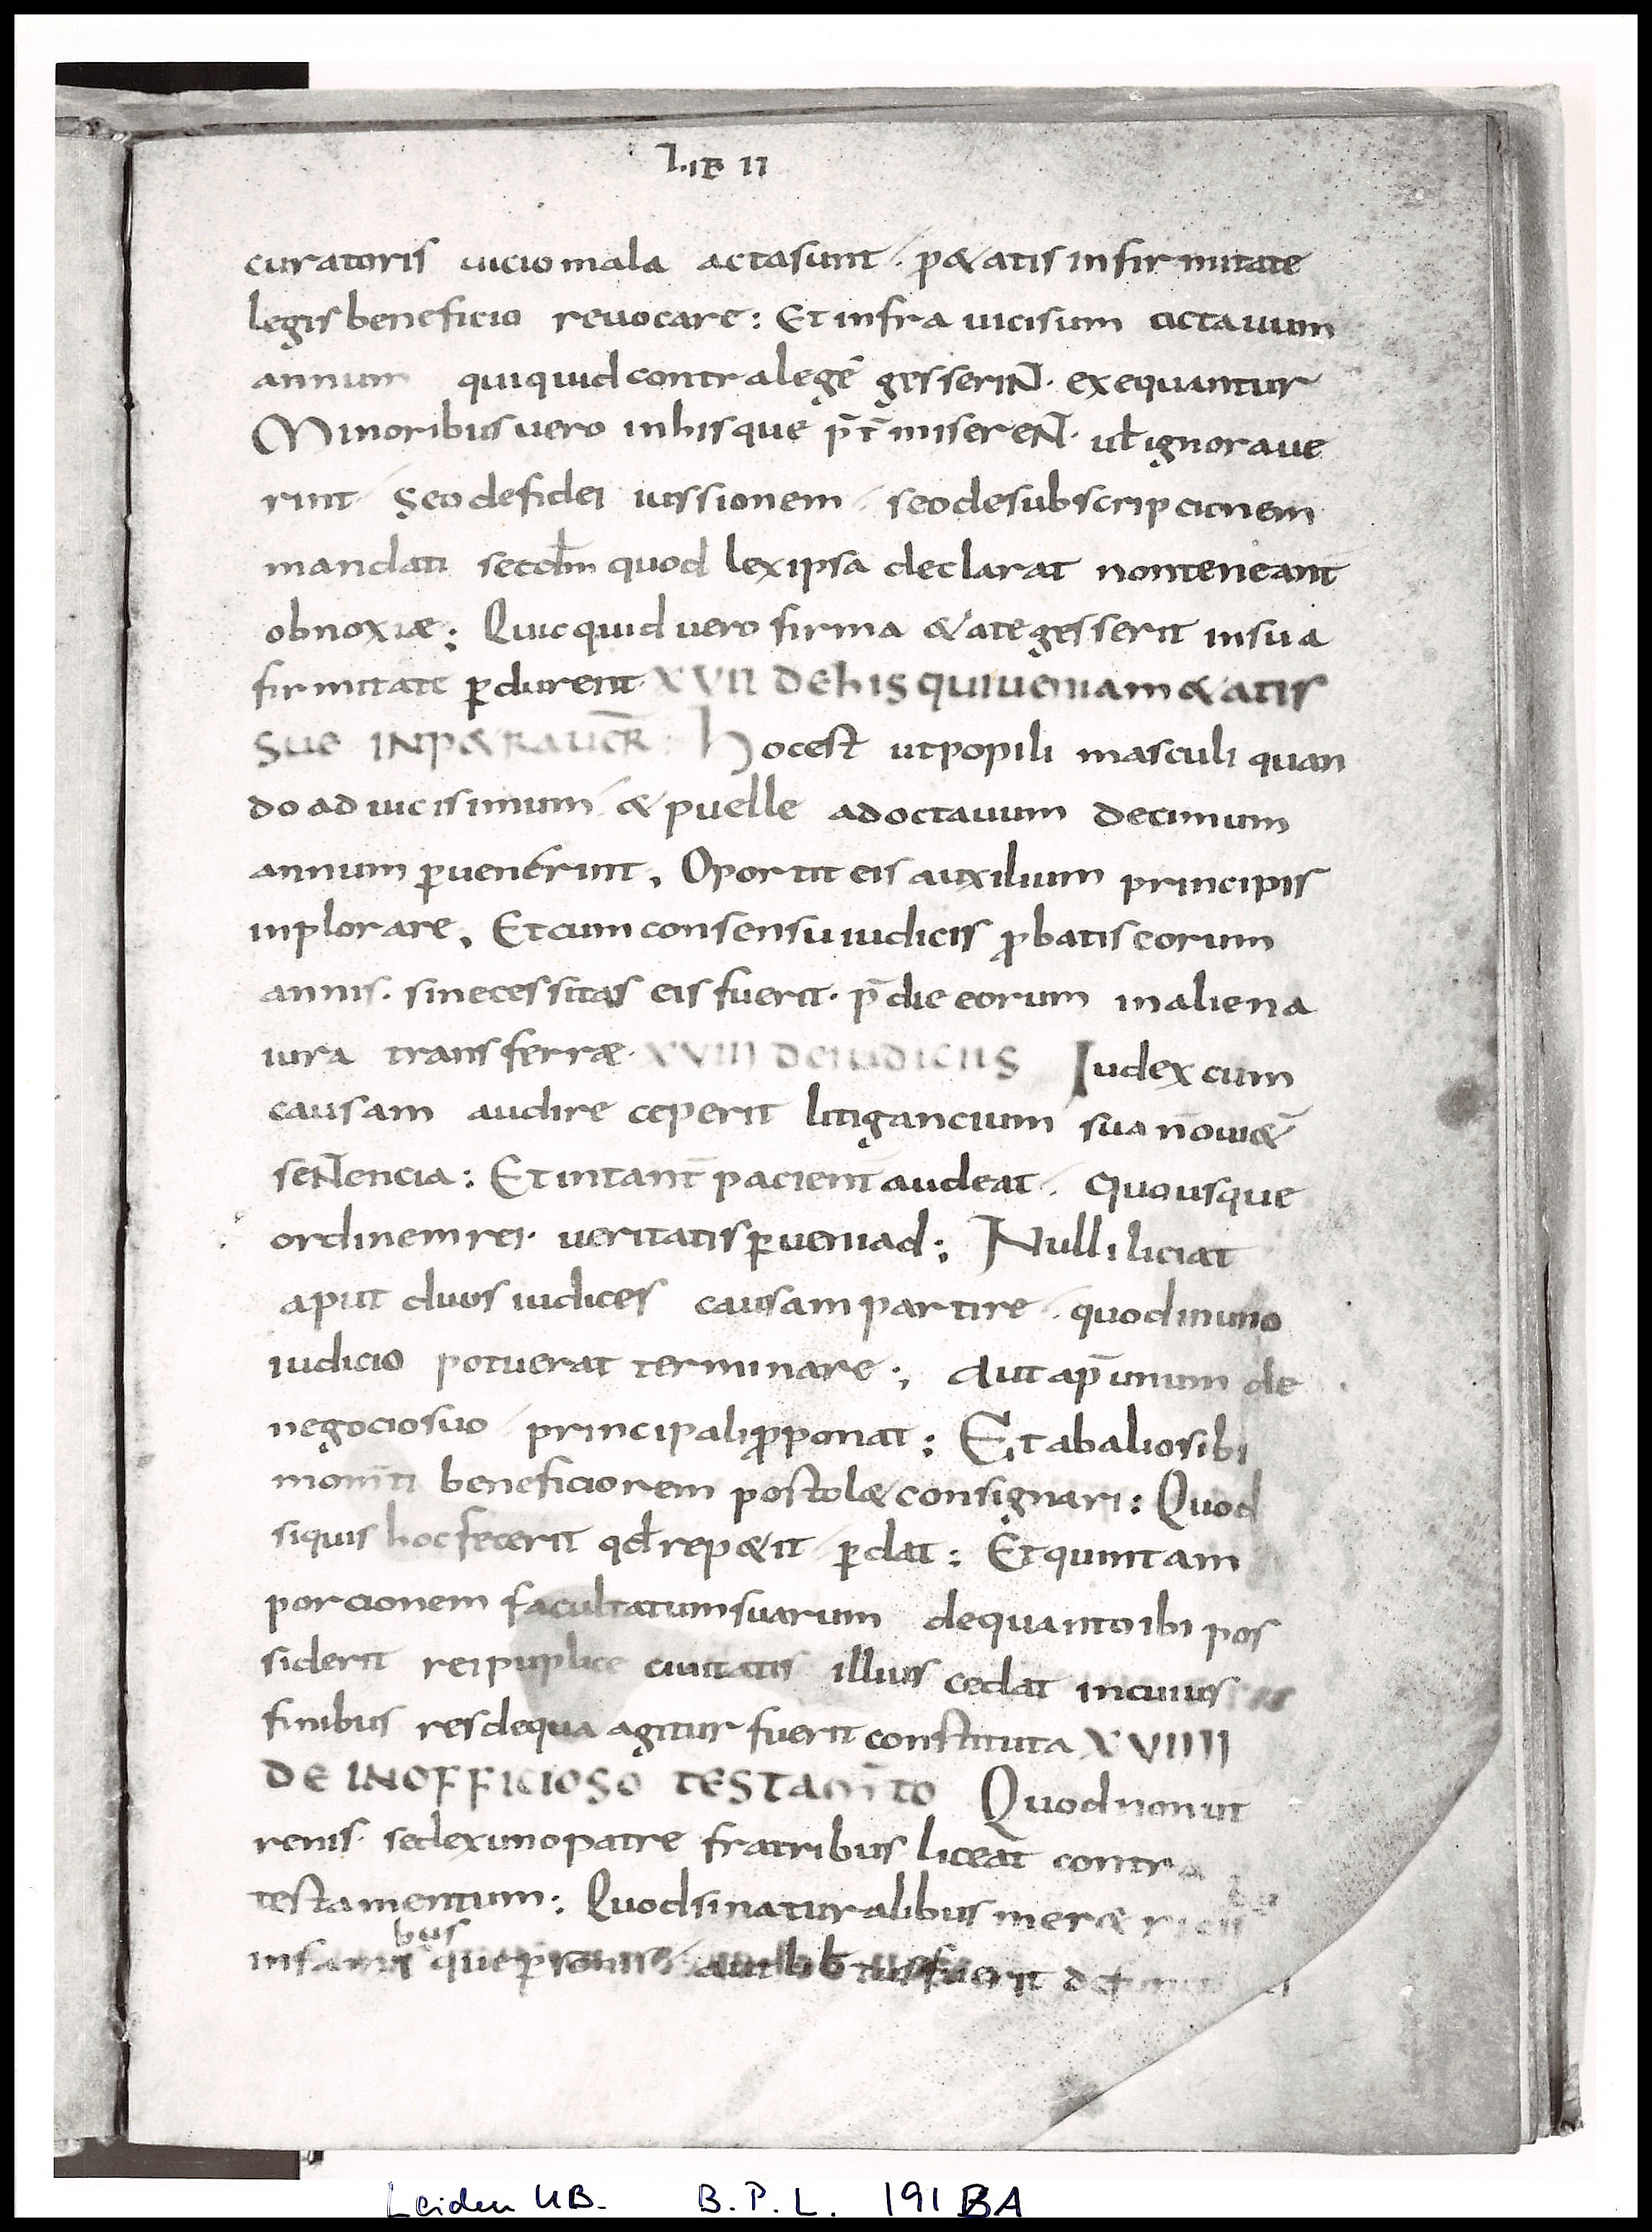 LIB II
curatoris uicio mala acta sunt / p &atis infirmitate
legis beneficio reuocare : Et infra uicisum octauum
annum quiquid contra legē gesserint · exequuntur
Minoribus uero in his que p̄t̄miserent · uł ignoraue
rint / Seo de fidei iussionem / seo de subscripcionem
mandati secdm̄ quod lex ipsa declarat non teneant̄
obnoxiæ : Quicquid uero firma &ate gesserit in sua
firmitate ꝑdurent · XVII DE his qui ueniam &atis
sue inp&rauer̄ : Hoc est ut popili masculi quan
do ad uicisimum / & puelle ad octauum decimum
annum ꝑuenerint , Oportit eis auxilium principis
inplorare , Et cum consensu iudicis ꝓbatis eorum
annis · si necessitas eis fuerit · p̄die eorum in aliena
iura transferræ · XVIII De iudiciis Iudex cum
causam audire ceperit litigancium sua nōui&
sentencia : Et in tant̄ pacient̄ audeat / Quousque
ordinem rei · ueritatis ꝑueniad : Nulli liciat
aput duos iudices causam partire / quod in uno
iudicio potuerat terminare : Aut ap̄ unum de
negocio suo / principali ꝓponat : Et ab alio sibi
moniti beneficiorem postol& consignari : Quod
si quis hoc fecerit qđ rep&it / ꝑdat : Et quintam
porcionem facultatum suarum de quanto ibi pos
siderit rei puplice ciuitatis illius cedat in cuius
finibus res de qua agitur fuerit constituta XVIIII
DE INOFFICIOSO TESTAM̄TO Quod non ut
renis · sed ex uno patre fratribus liceat̄ contra
testamentum : Quod si naturalibus mer&ricis
infamibus que ꝑsonis / aut lib tus fuerit
Leiden UB. B.P.L. 191 BA